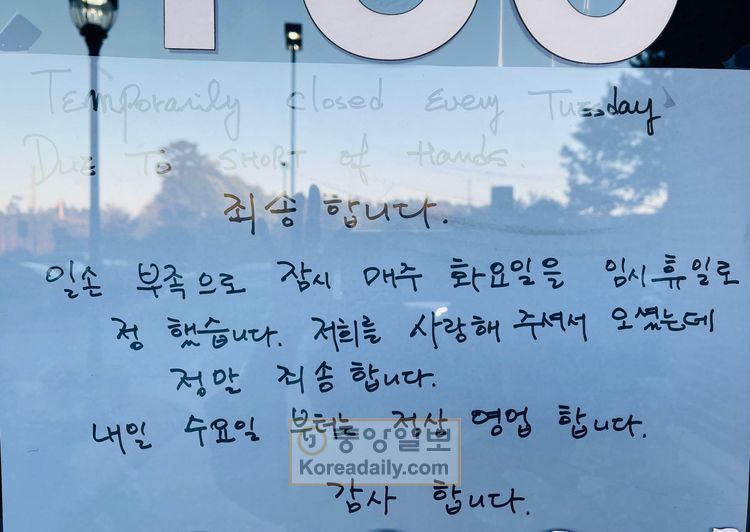 Temporarily closed Every Tuesday
Due To SHORT of Hands.
죄송 합니다.
일손 부족으로 잠시 매주 화요일을 임시휴일로
정 했습니다. 저희를 사랑해 주셔서 오셨는데
정말 죄송 합니다.
내일 수요일 부터는 정상 영업 합니다.
중앙일보
Koreadaily.com
감사 합니다.